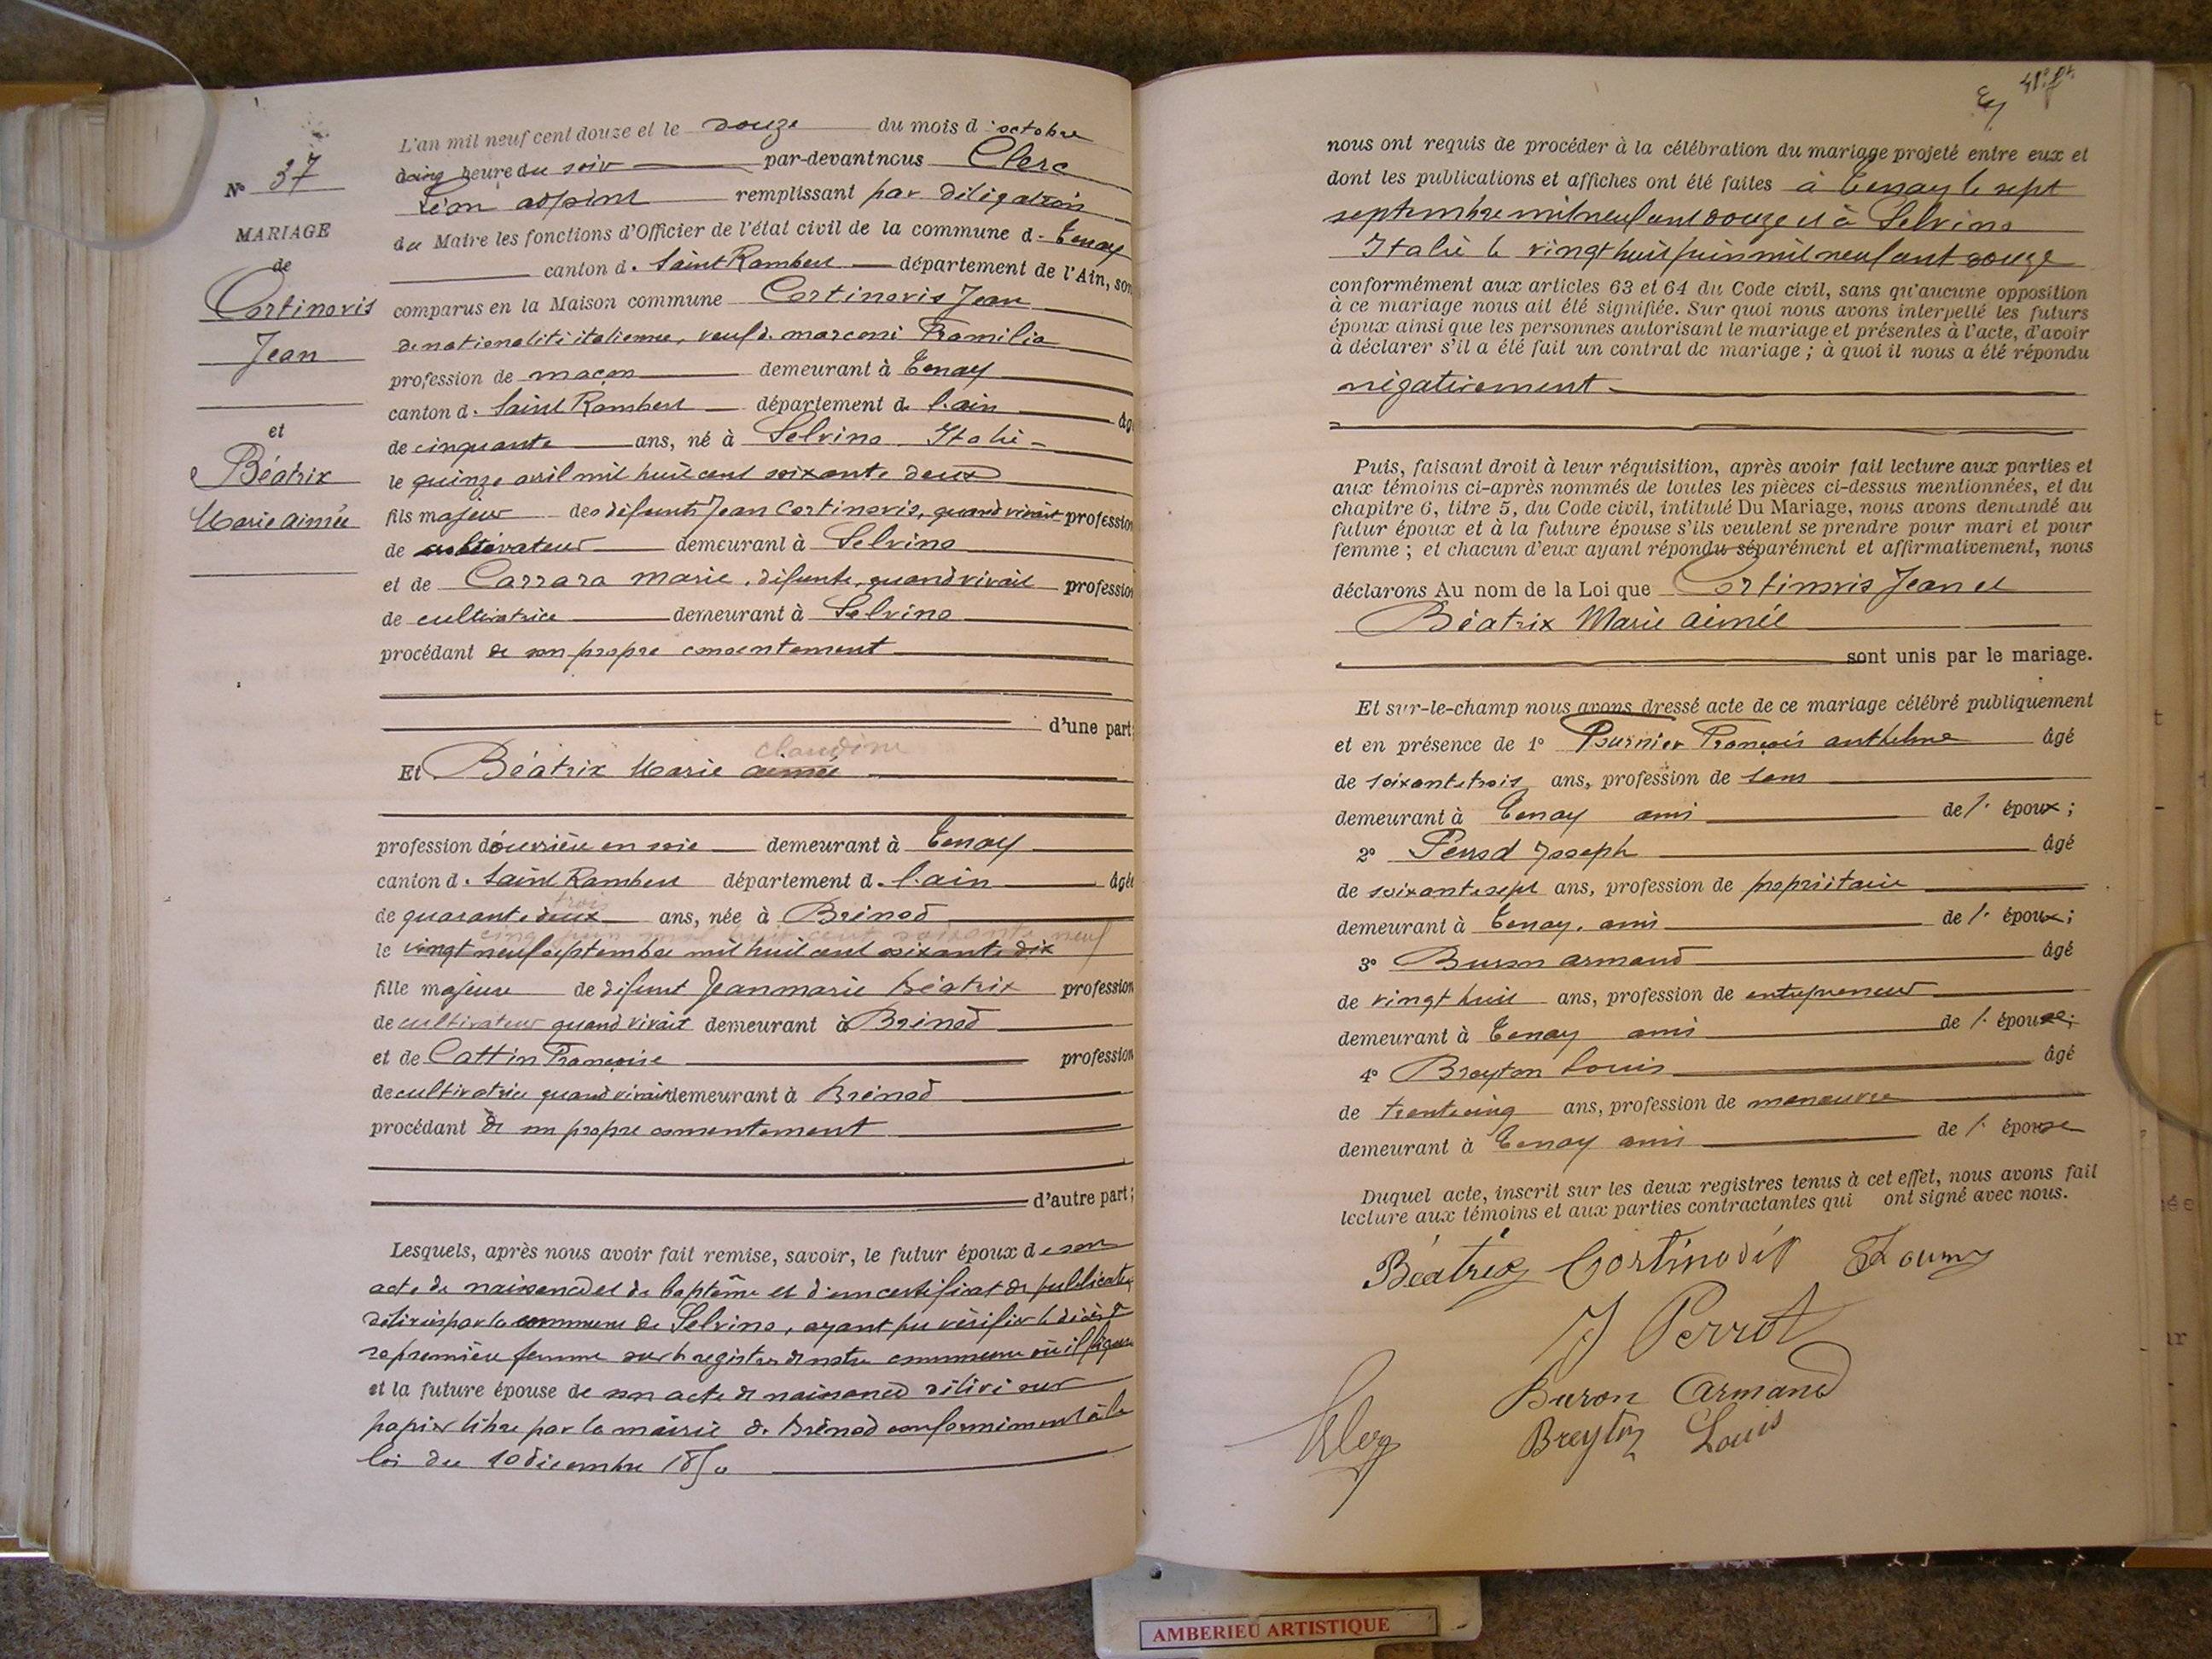 N° 37
MARIAGE
de
Cortinovis
Jean
et
Béatrix
Marie Aimée
L'an mil neuf cent douze et le douze du mois d'octobre
à cinq heure du soir par-devant nous Clerc
Léon adjoint remplissant par déligation
du Maire les fonctions d'Officier de l'état civil de la commune de Tenay
canton de Saint Rambert département de l'Ain, son
comparus en la Maison commune Cortinovis Jean
de nationalité italienne, veuf de marconi
profession de maçon demeurant à Tenay
canton de Saint Rambert département de l'ain âg
de cinquante ans, né à Selvino Italie
le quinze avril mil huit cent soixante deux
fils majeur des défunts Jean Cortinovis, quand vivait profession
de cultivateur demeurant à Selvino
et de Carrara marie, défunte, quand vivait profession
de cultivatrice demeurant à Selvino
procédant de son propre consentement
d'une part;
claudine
Et Béatrix Marie aimée
profession d'ouvrière en soie demeurant à Tenay
canton de Saint Rambert département de l'ain âgée
trois
de quarante deux ans, née à Brénod
cinq juin mil huit cent soixante neuf
le vingt neuf septembre mil huit cent soixante dix
fille majeure de défunt Jean marie Béatrix profession
de cultivateur quand vivait demeurant à Brénod
et de Cattin Françoise profession
de cultivatrice quand vivait demeurant à Brénod
procédant de son propre consentement
d'autre part;
Lesquels, après nous avoir fait remise, savoir, le futur époux de son
acte de naissance et de baptême et d'un certificat de publicat
délivrés par la commune de Selvino, ayant pu vérifier le décès de
sa première femme sur le registre de notre commune où il figure
et la future épouse de son acte de naissance délivré sur
papier libre par la mairie de Brénod conformément à la
loi du 10 décembre 1850
41e ft
nous ont requis de procéder à la célébration du mariage projeté entre eux et
dont les publications et affiches ont été faites à Tenay le sept
septembre mil neuf cent douze et à Selvino
Italie le vingt huit juin mil neuf cent douze
conformément aux articles 63 et 64 du Code civil, sans qu'aucune opposition
à ce mariage nous ait été signifiée. Sur quoi nous avons interpellé les futurs
époux ainsi que les personnes autorisant le mariage et présentes à l'acte, d'avoir
à déclarer s'il a été fait un contrat de mariage ; à quoi il nous a été répondu
négativement
Puis, faisant droit à leur réquisition, après avoir fait lecture aux parties et
aux témoins ci-après nommés de toutes les pièces ci-dessus mentionnées, et du
chapitre 6, titre 5, du Code civil, intitulé Du Mariage, nous avons demandé au
futur époux et à la future épouse s'ils veulent se prendre pour mari et pour
femme ; et chacun d'eux ayant répondu séparément et affirmativement, nous
déclarons Au nom de la Loi que Cortinovis Jean et
Béatrix Marie Aimée
sont unis par le mariage.
Et sur-le-champ nous avons dressé acte de ce mariage célébré publiquement
et en présence de 1° François anthelme âgé
de soixante trois ans, profession de sans
demeurant à Tenay ami de l'époux;
2° Joseph âgé
de soixante sept ans, profession de propriétaire
demeurant à Tenay, ami de l'époux;
3° Buron armand âgé
de vingt huit ans, profession de entrepreneur
demeurant à Tenay ami de l'épouse;
4° Breyton Louis âgé
de trente cinq ans, profession de manoeuvre
demeurant à Tenay ami de l'épouse
Duquel acte, inscrit sur les deux registres tenus à cet effet, nous avons fait
lecture aux témoins et aux parties contractantes qui ont signé avec nous.
Béatrix Cortinovis
J Perrot
Buron Armand
Clerc Breyton Louis
AMBERIEU ARTISTIQUE